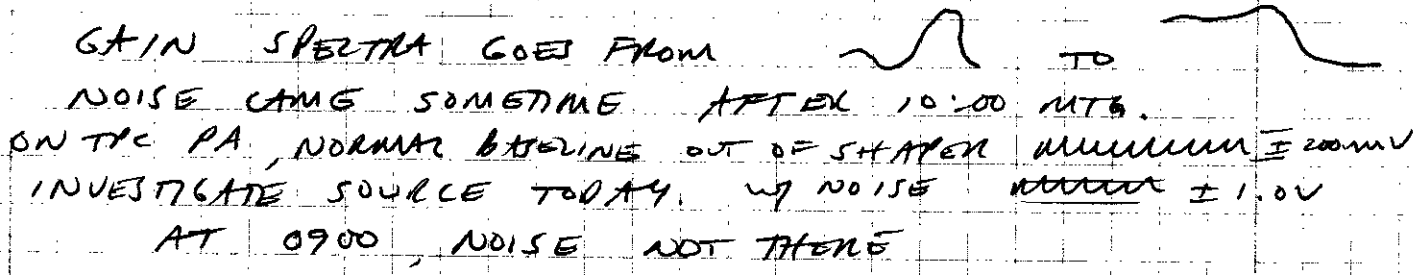 GAIN SPECTRA GOES FROM TO
NOISE CAME SOMETIME AFTER 10:00 MTG.
ON TPC PA, NORMAL BASELINE OUT OF SHAPER ± 200mV
INVESTIGATE SOURCE TODAY. w/ NOISE ± 1.0V
AT 0900, NOISE NOT THERE